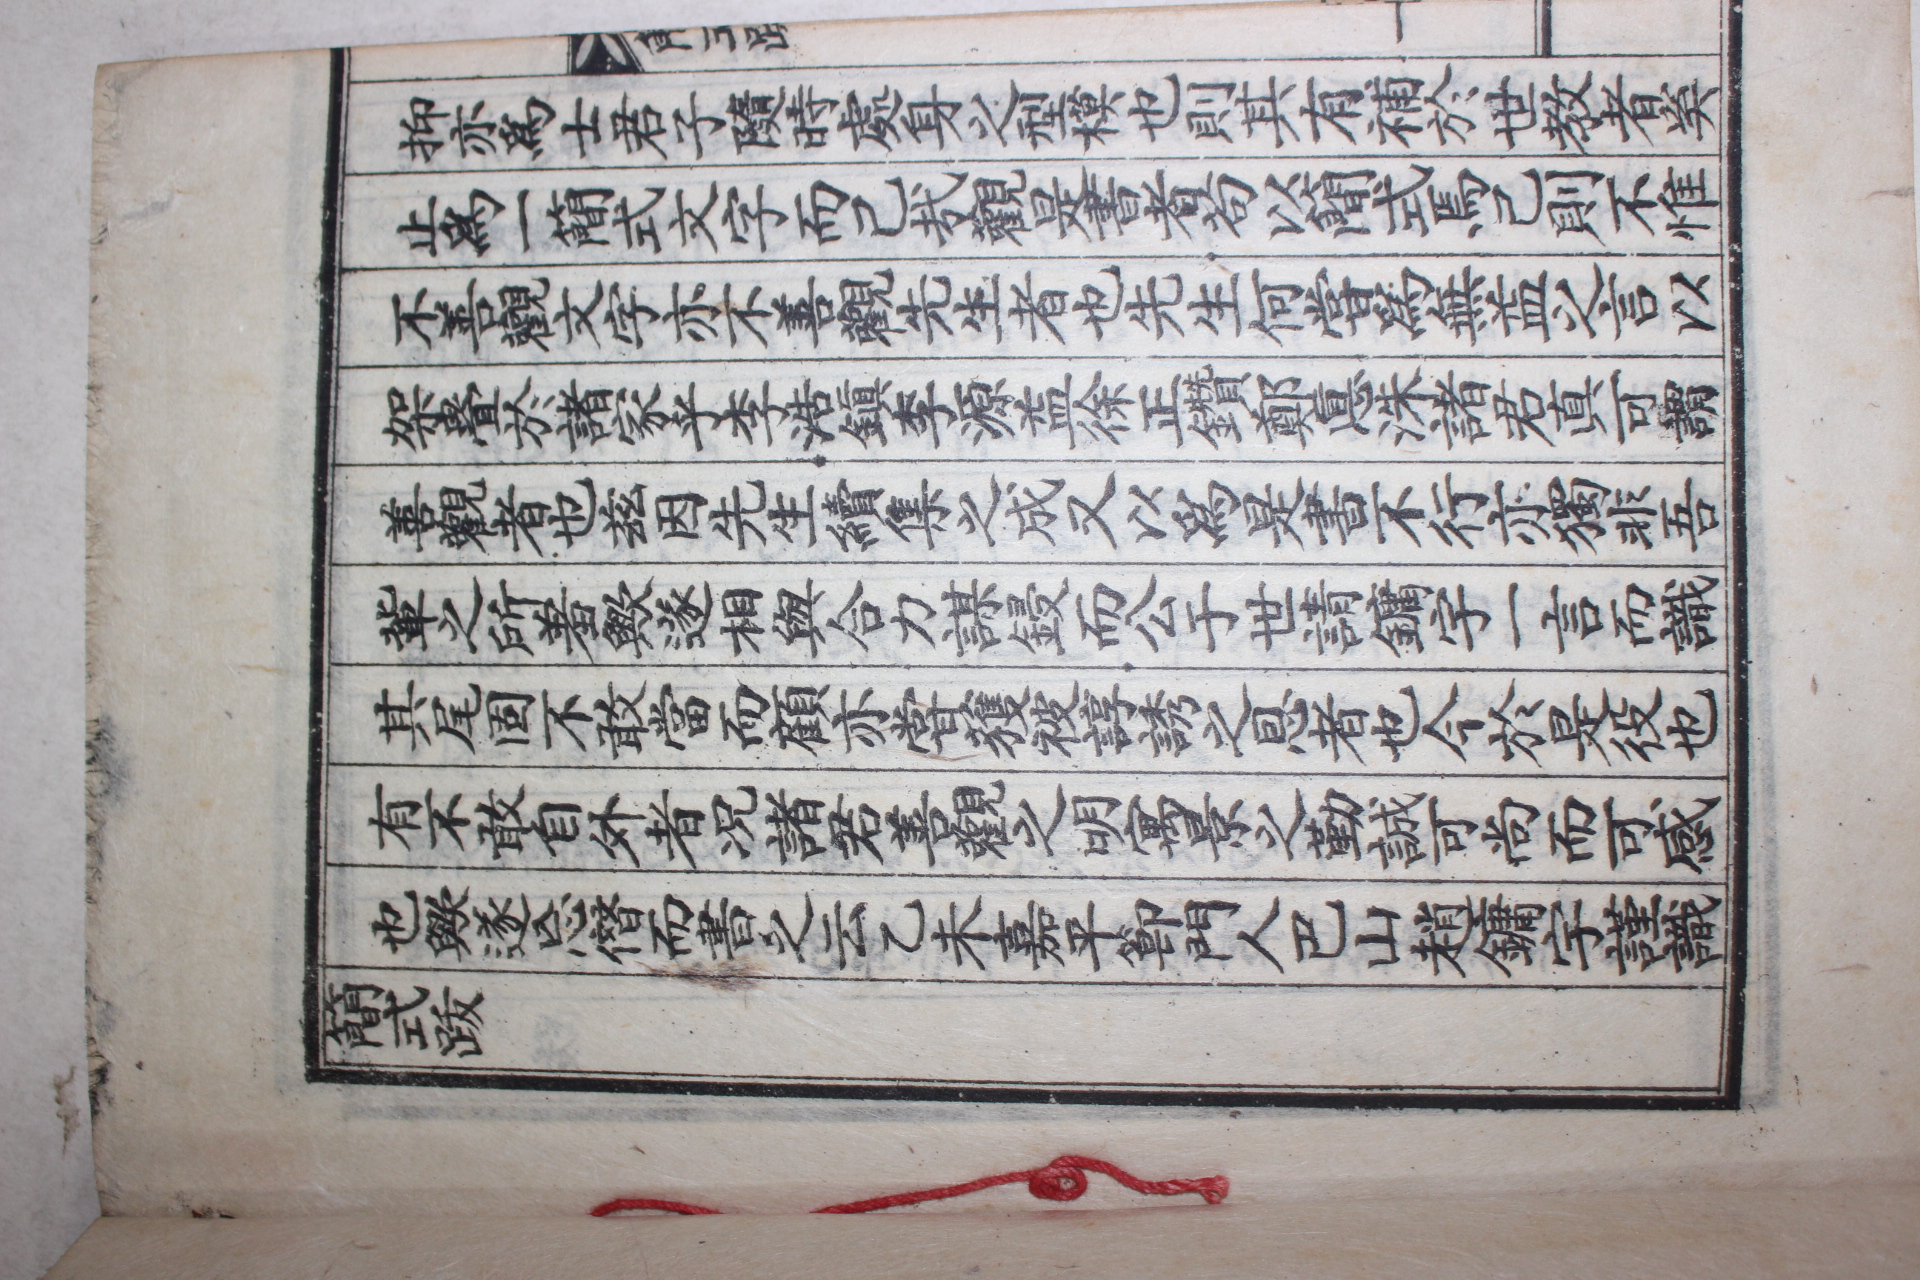 抑亦爲士君子隨時處身之型模也則其有補於世教者矣
止爲一簡式文字而已哉觀是書者苟以簡式焉已則不惟
不善觀文字亦不善觀先生者也先生何嘗爲無益之言以
架疊於諸家乎李浩鎭李源益徐正鑽鄭悳洙諸君眞可謂
善觀者也玆因先生續集之成又以爲是書不行亦獨非吾
輩之所羞歟遂相與合力謀鋟而公于世請鏞字一言而識
其尾固不敢當而顧亦嘗獲被諄誘之恩者也今於是役也
有不敢自外者况諸君善觀之明寓景之勤誠可尚而可感
也歟遂忘僭而書之云乙未嘉平節門人巴山趙鏞字謹識
簡式跋
簡式跋
一